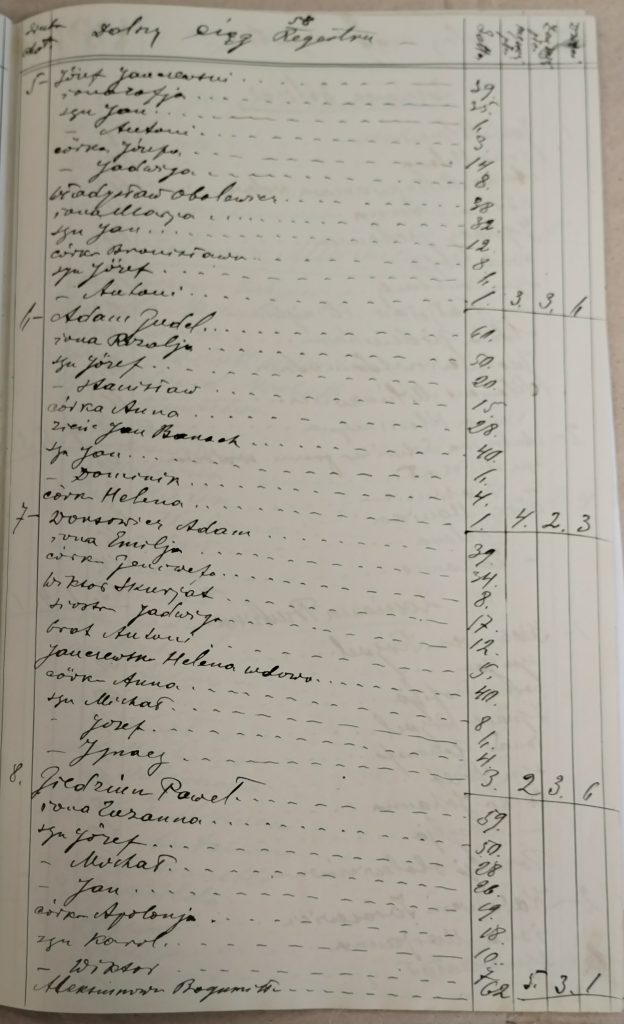 58
Dalszy ciąg Regestru
5- Józef Janczewski 39.
żona Zofja 35.
syn Jan 6.
- Antoni 3.
córka Józefa 14
- Jadwiga 8.
Władysław Obolewicz 38
żona Marja 32
syn Jan 12
córka Bronisława 8
syn Józef 6.
- Antoni 1. 3. 3. 6
6- Adam Judel 60.
żona Rozalja 50.
syn Józef 20.
- Stanisław 15.
córka Anna 28.
zięć Jan Banach 40
syn Jan 6.
- Dominik 4.
córk Helena 1. 4. 2. 3
7- Adam 39.
żona Emilja 34.
córk 8.
Wiktor Skurjat 17
siostr Jadwiga 12.
brat Antoni 5.
Janczewska Helena wdowa 40.
córk Anna 8
syn Michał 6.
- Józef 4.
- Ignacy 3. 2 3. 6
8. Paweł 59.
żona Zuzanna 50.
syn Józef 28
- Michał 26.
- Jan 19.
córka Apolonja 18.
syn Karol 10.
- Wiktor 7
62 5. 3. 1